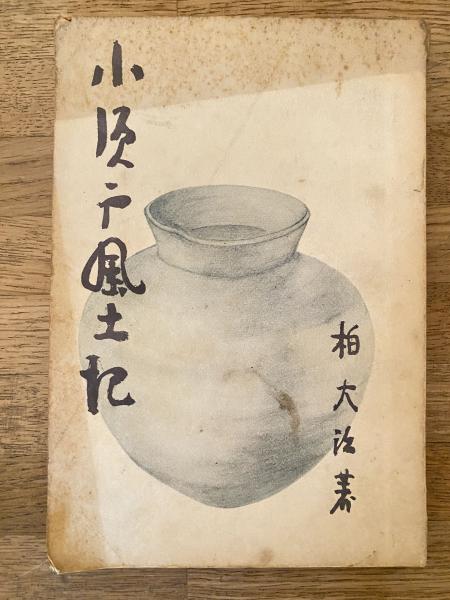 小須戸風土記
柏大治著